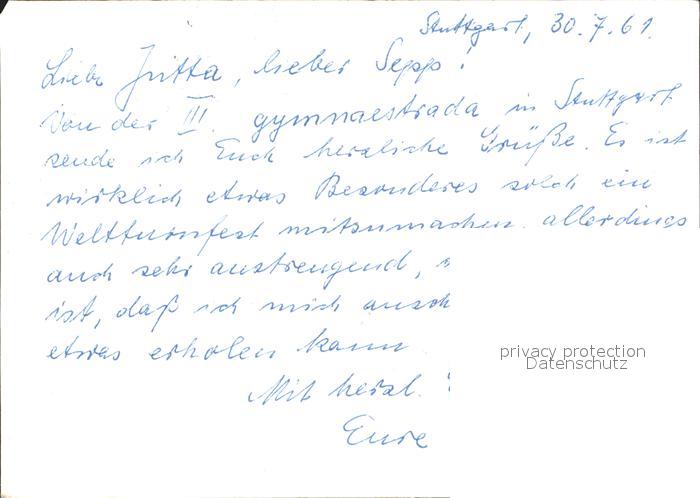 Stuttgart, 30.7.61.
Liebe Jutta, lieber Sepp!
Von der III. gymnaestrada in Stuttgart
sende ich Euch herzliche Grüße. Es ist
wirklich etwas Besonderes solch ein
Weltturnfest mitzumachen. allerdings
auch sehr anstrengend,
ist, daß ich mich ansch
etwas erholen kann
privacy protection
Datenschutz
Mit herzl.
Eure